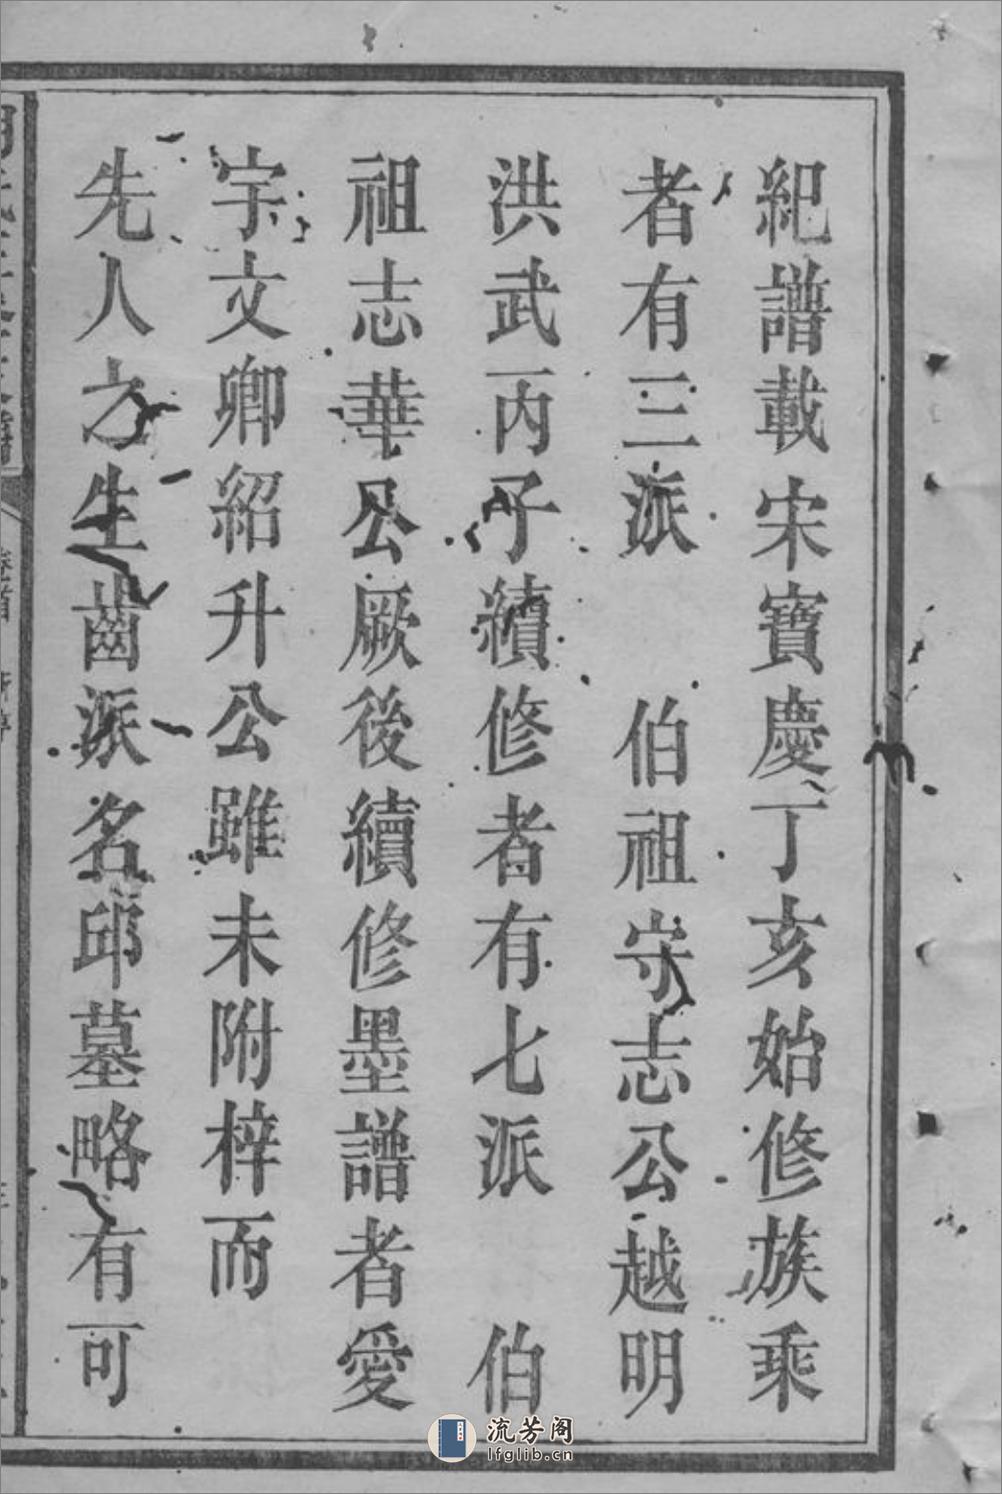 紀譜載宋寶慶丁亥始修族乘
者有三派　伯祖守志公越明
洪武丙子續修者有七派　伯
祖志華公厥後續修墨譜者愛
宇文卿紹升公雖未附梓而
先人之生齒派名邱墓略有可
卷首
流芳阁
lfglib.cn